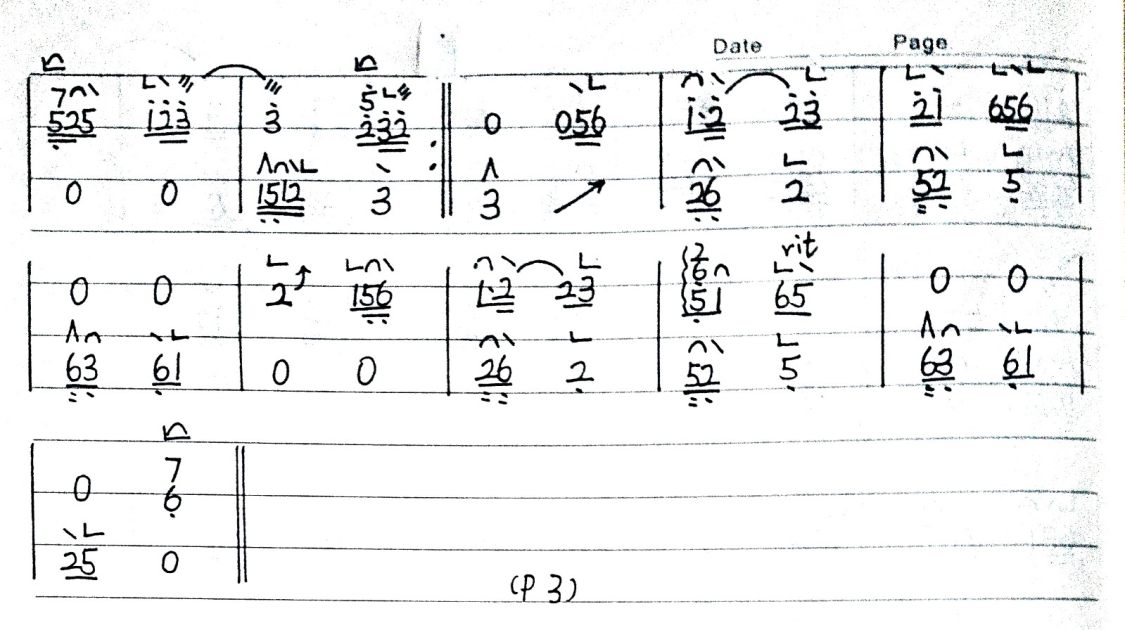 Date Page
7
525 1̇2̇3̇ | 3̇ 5̇ 2̇3̇2̇ : || 0 056 | 1̇·2̇ 2̇3̇ | 2̇1̇ 656
0 0 | 1512 3 | 3 ↗ | 26 2 | 52 5
rit
0 0 | 2↑ 156 | 1·2 23 | 2 6 51 65 | 0 0
63 61 | 0 0 | 26 2 | 52 5 | 63 61
0 7 6 ||
25 0
(P 3)